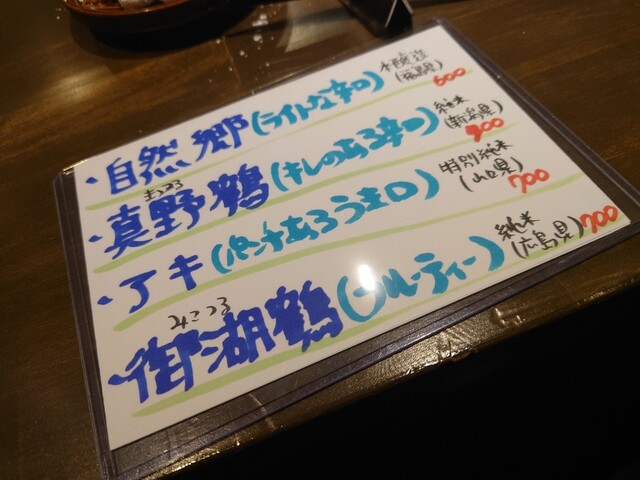 ・自然郷(ライトな辛口) 本醸造 (福島県) 600
まのつる
・真野鶴(キレのある辛口) 純米 (新潟県) 900
・アキ(パンチあるうま口) 特別純米 (山口県) 700
みこつる
・御湖鶴(フルーティー) 純米 (広島県) 700